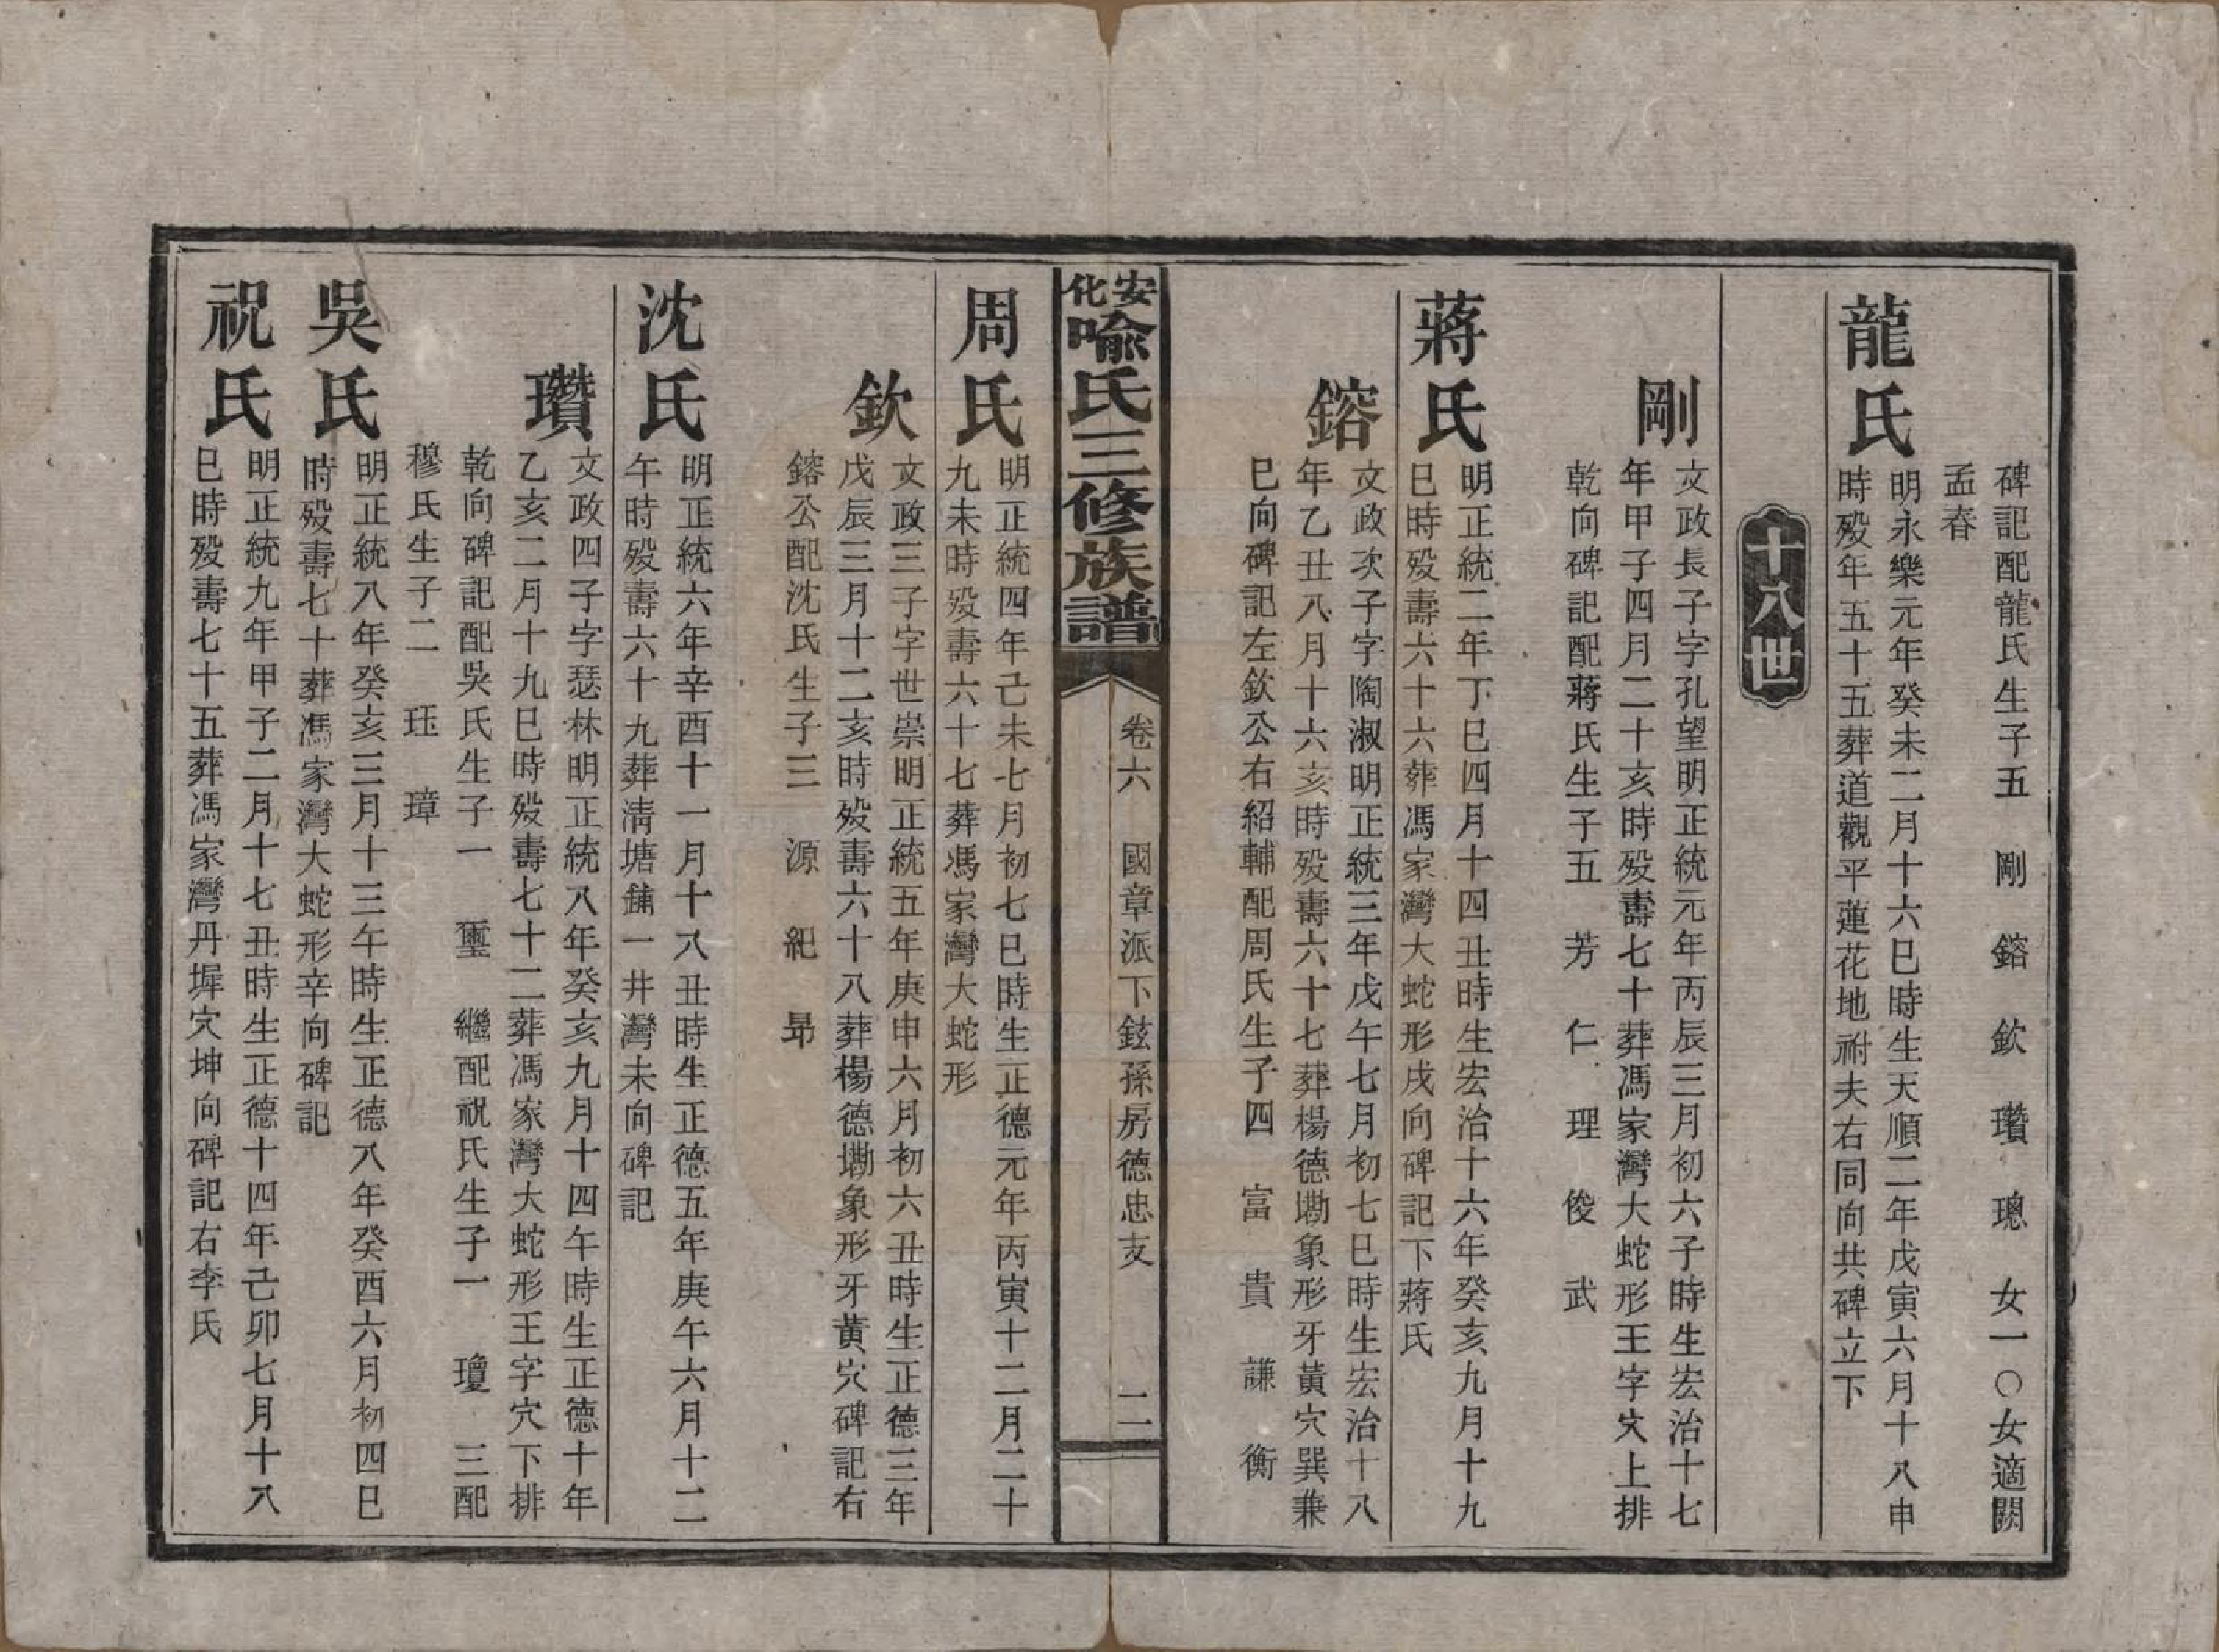 碑記配龍氏生子五　剛　鎔　欽　瓚　璁　女一〇女適闕
孟春
龍氏
明永樂元年癸未二月十六巳時生天順二年戊寅六月十八申
時殁年五十五葬道觀平蓮花地祔夫右同向共碑立下
十八世
剛
文政長子字孔望明正統元年丙辰三月初六子時生宏治十七
年甲子四月二十亥時殁壽七十葬馮家灣大蛇形王字穴上排
乾向碑記配蔣氏生子五　芳　仁　理　俊　武
蔣氏
明正統二年丁巳四月十四丑時生宏治十六年癸亥九月十九
巳時殁壽六十六葬馮家灣大蛇形戌向碑記下蔣氏
鎔
文政次子字陶淑明正統三年戊午七月初七巳時生宏治十八
年乙丑八月十六亥時殁壽六十七葬楊德墈象形牙黃穴巽兼
巳向碑記左欽公右紹輔配周氏生子四　富　貴　謙　衡
安化喻氏三修族譜
卷六　國章派下鉉孫房德忠支　二
周氏
明正統四年己未七月初七巳時生正德元年丙寅十二月二十
九未時殁壽六十七葬馮家灣大蛇形
欽
文政三子字世崇明正統五年庚申六月初六丑時生正德三年
戊辰三月十二亥時殁壽六十八葬楊德墈象形牙黃穴碑記右
鎔公配沈氏生子三　源　紀　昻
沈氏
明正統六年辛酉十一月十八丑時生正德五年庚午六月十二
午時殁壽六十九葬清塘鋪一井灣未向碑記
瓚
文政四子字瑟林明正統八年癸亥九月十四午時生正德十年
乙亥二月十九巳時殁壽七十二葬馮家灣大蛇形王字穴下排
乾向碑記配吳氏生子一　璽　繼配祝氏生子一　瓊　三配
穆氏生子二　珏　璋
吳氏
明正統八年癸亥三月十三午時生正德八年癸酉六月初四巳
時殁壽七十葬馮家灣大蛇形辛向碑記
祝氏
明正統九年甲子二月十七丑時生正德十四年己卯七月十八
巳時殁壽七十五葬馮家灣丹墀穴坤向碑記右李氏